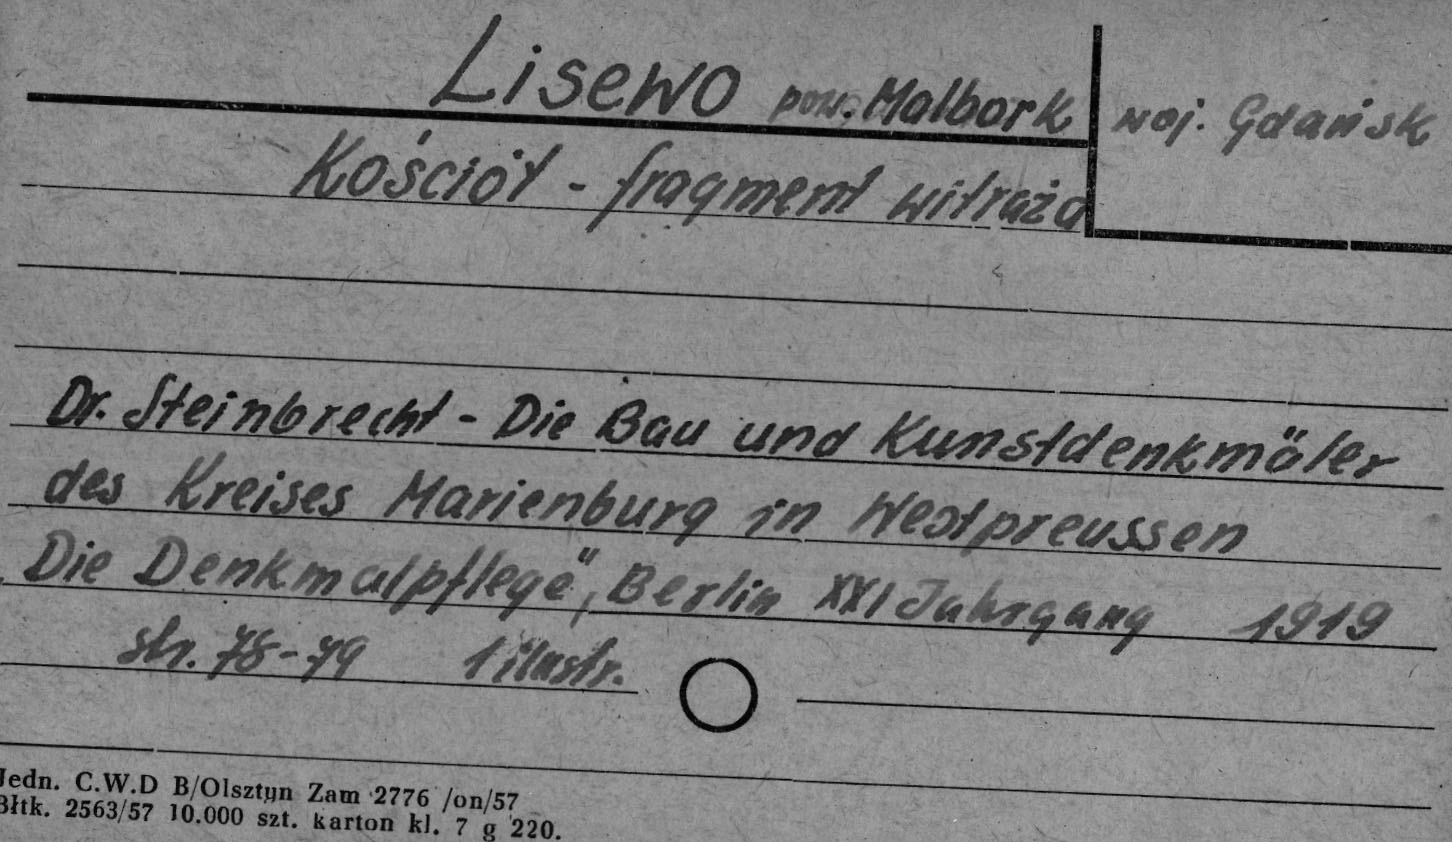 Lisewo pow. Malbork
woj. Gdańsk
Kościół - fragment witraża
Dr. Steinbrecht - Die Bau und Kunstdenkmäler
des Kreises Marienburg in Westpreussen
Die Denkmalpflege", Berlin XXI Jahrgang 1919
str. 78-79 1 ilustr.
Jedn. C.W.D B/Olsztyn Zam 2776 /on/57
Błtk. 2563/57 10.000 szt. karton kl. 7 g 220.